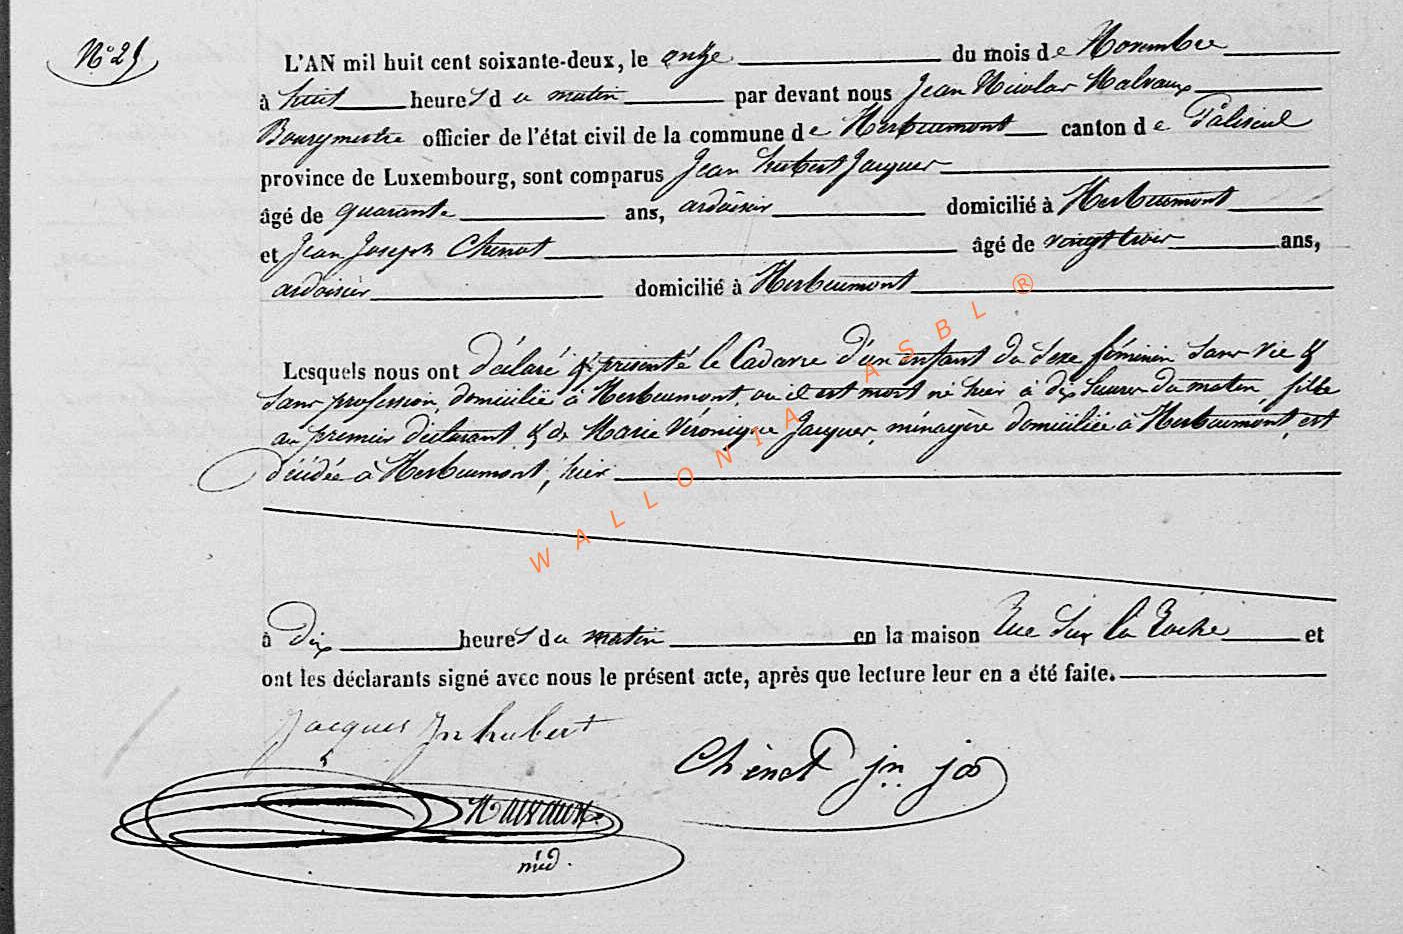 N° 25
L'AN mil huit cent soixante-deux, le onze du mois de Novembre
à huit heures du matin par devant nous Jean Nicolas Malvaux
Bourgmestre officier de l'état civil de la commune de Herbeumont canton de Paliseul
province de Luxembourg, sont comparus Jean hubert Jacques
âgé de quarante ans, ardoisier domicilié à Herbeumont
et Jean Joseph Chenot âgé de vingt trois ans,
ardoisier domicilié à Herbeumont
Lesquels nous ont déclaré & présenté le Cadavre d'un enfant du Sexe féminin Sans vie &
Sans profession, domiciliée à Herbeumont, où il est mort né hier à dix heures du matin, fille
au premier déclarant & de Marie Véronique Jacques, ménagère domiciliée à Herbeumont, est
décédée à Herbeumont, hier
à Dix heures du matin en la maison Rue Sur la Roche et
ont les déclarants signé avec nous le présent acte, après que lecture leur en a été faite.
Jacques Jn hubert
Chènot jn jos
Malvaux
méd.
WALLONIA ASBL ®